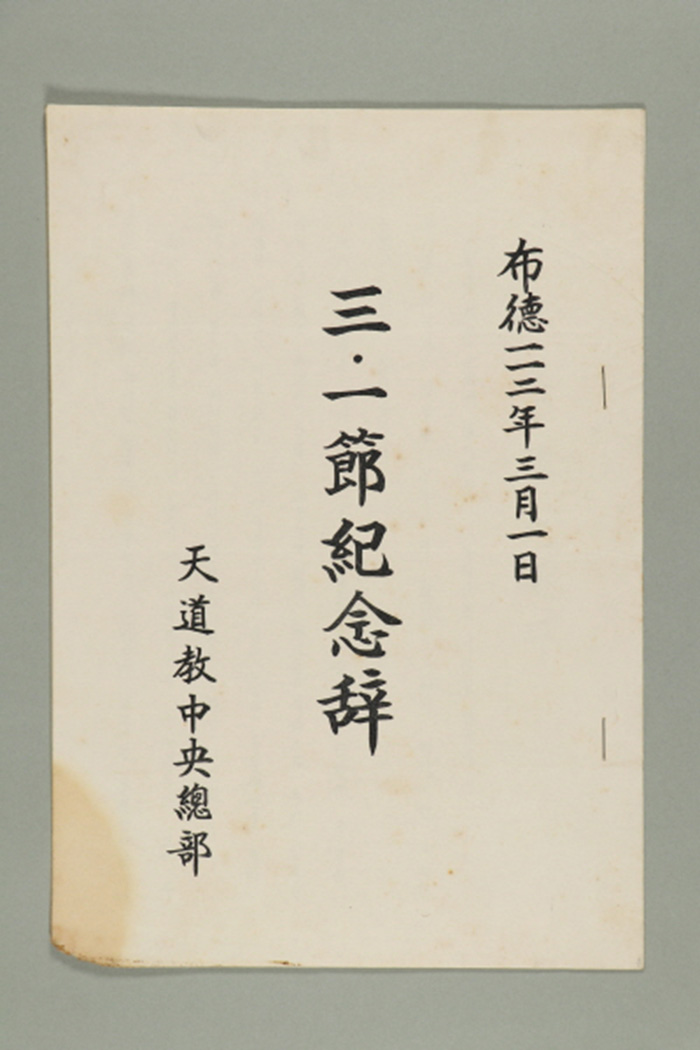 布德一二二年三月一日
三·一節紀念辞
天道教中央總部